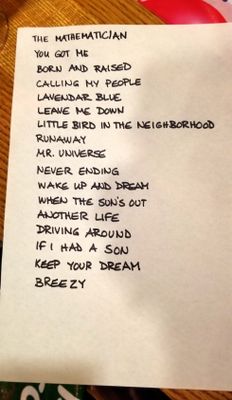 THE MATHEMATICIAN
YOU GOT ME
BORN AND RAISED
CALLING MY PEOPLE
LAVENDAR BLUE
LEAVE ME DOWN
LITTLE BIRD IN THE NEIGHBORHOOD
RUNAWAY
MR. UNIVERSE
NEVER ENDING
WAKE UP AND DREAM
WHEN THE SUN'S OUT
ANOTHER LIFE
DRIVING AROUND
IF I HAD A SON
KEEP YOUR DREAM
BREEZY